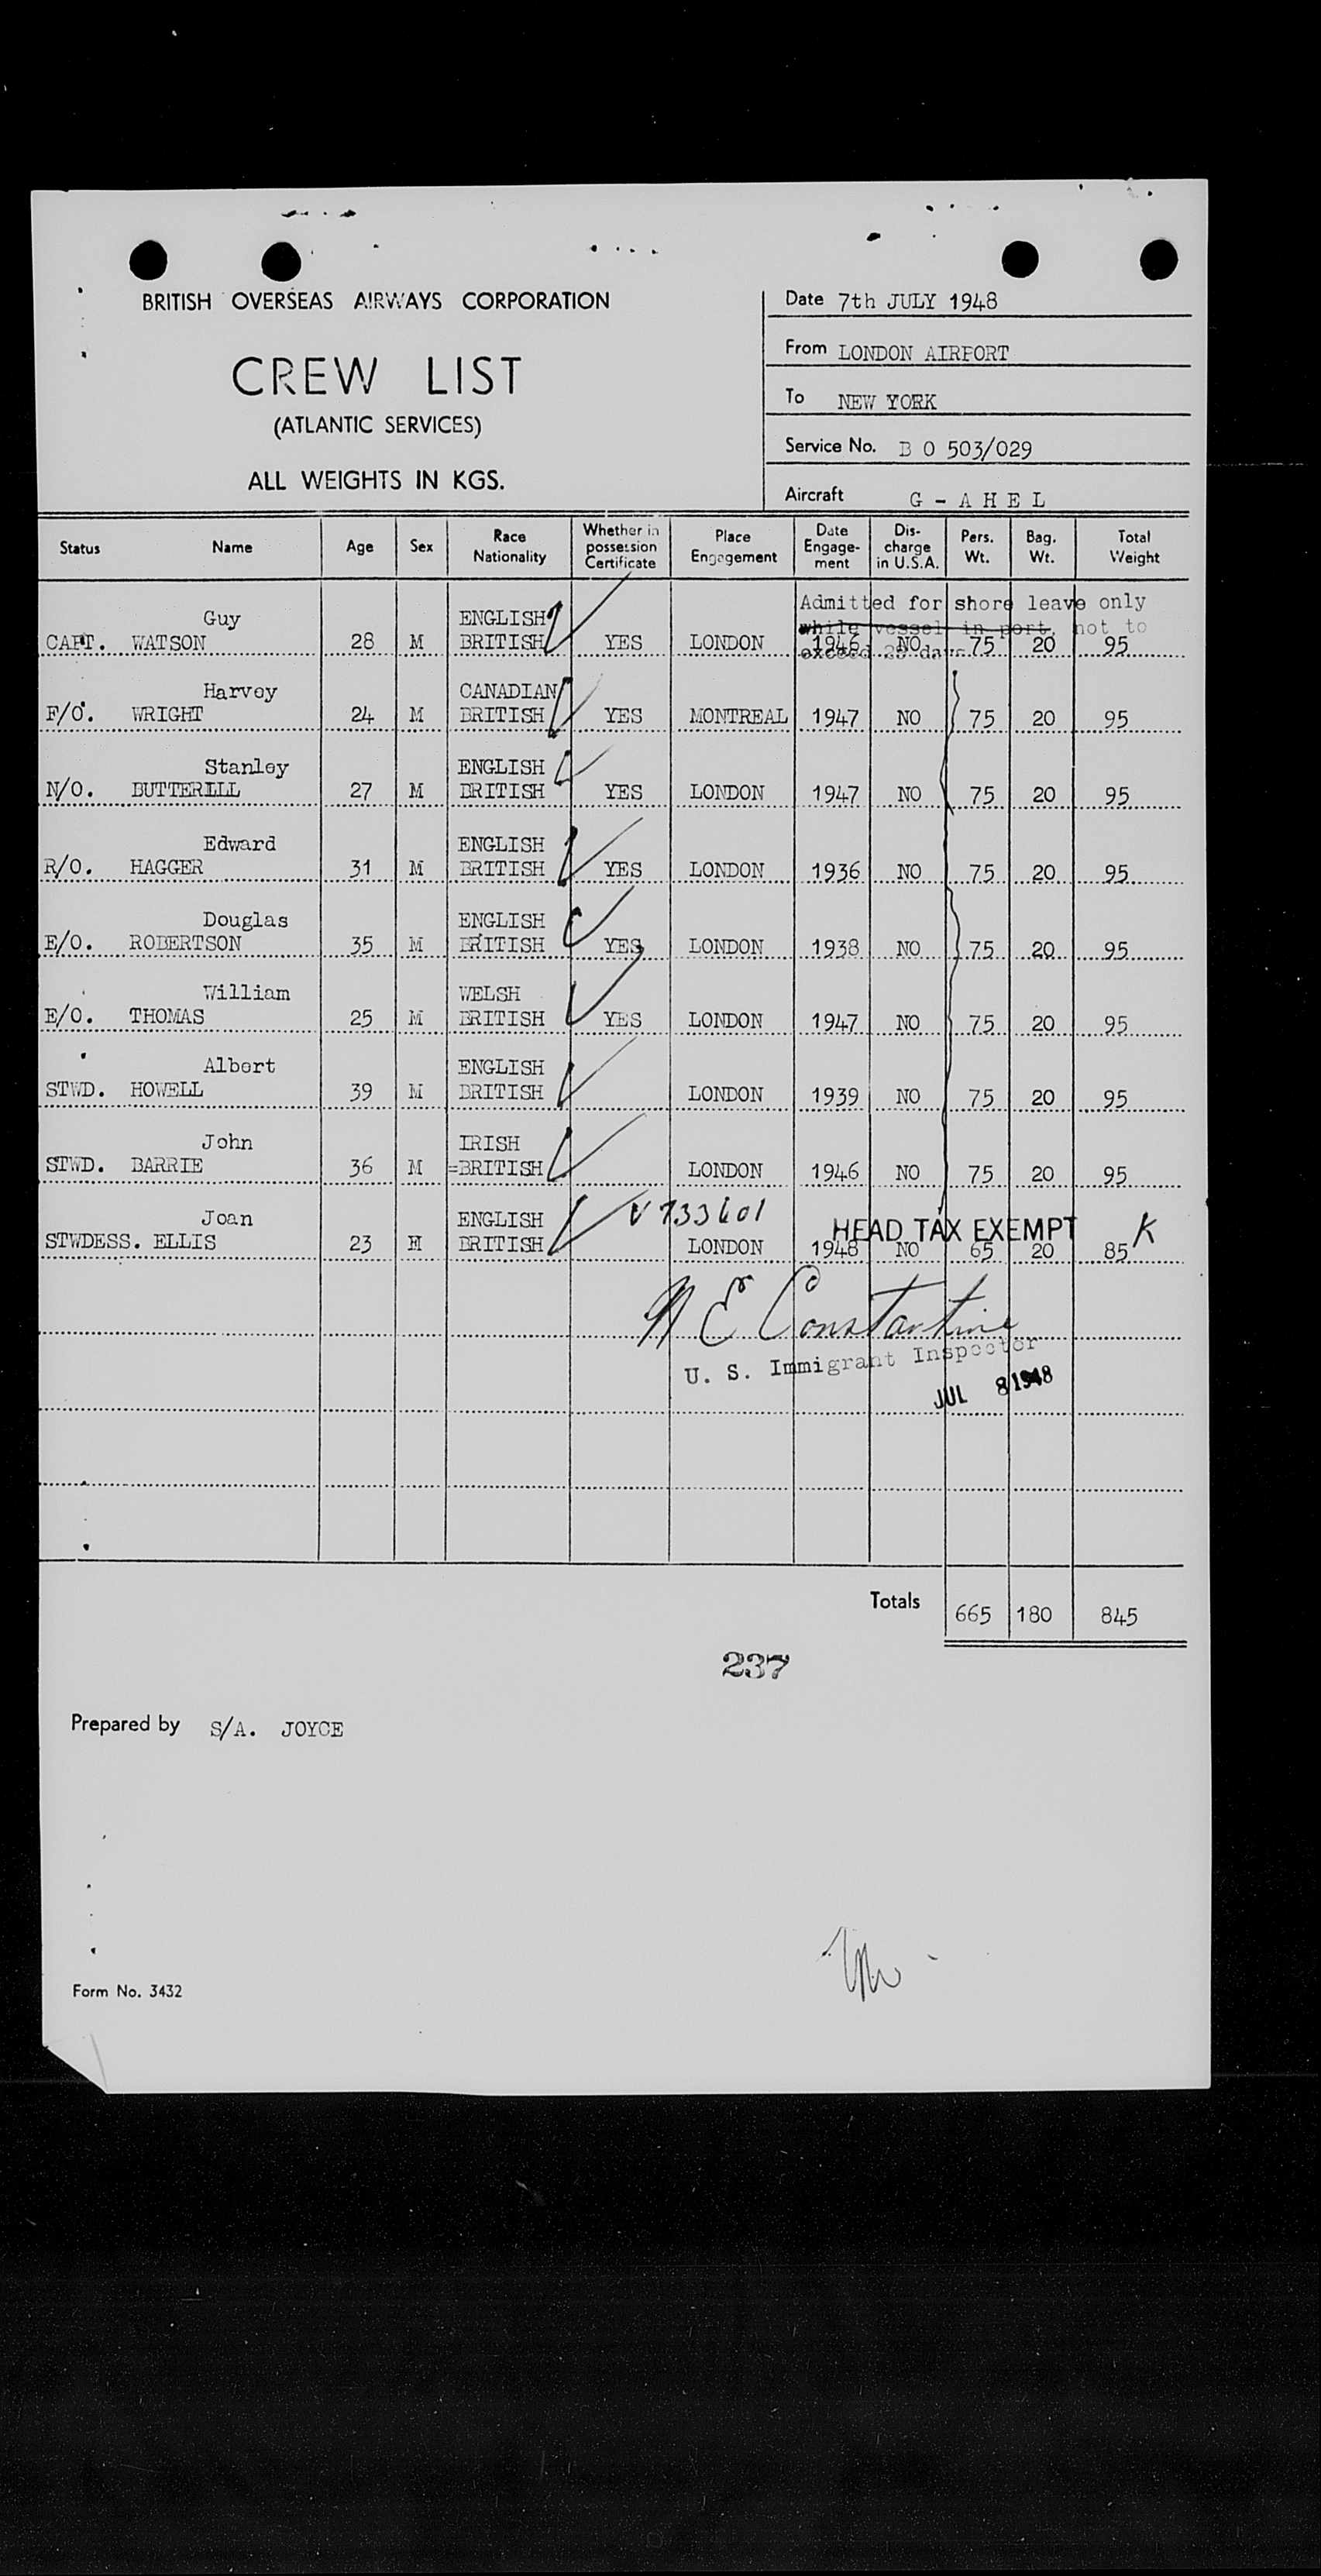 BRITISH OVERSEAS AIRWAYS CORPORATION
CREW LIST
(ATLANTIC SERVICES)
ALL WEIGHTS IN KGS.
Date 7th JULY 1948
From LONDON AIRPORT
To NEW YORK
Service No. B O 503/029
Aircraft G - A H E L
Status Name Age Sex Race Nationality Whether in possession Certificate Place Engagement Date Engage-ment Dis-charge in U.S.A. Pers. Wt. Bag. Wt. Total Weight
Admitted for shore leave only
while vessel in port, not to
exceed 29 days
Guy ENGLISH
CAPT. WATSON 28 M BRITISH YES LONDON 1946 NO 75 20 95
Harvey CANADIAN
F/O. WRIGHT 24 M BRITISH YES MONTREAL 1947 NO 75 20 95
Stanley ENGLISH
N/O. BUTTERILL 27 M BRITISH YES LONDON 1947 NO 75 20 95
Edward ENGLISH
R/O. HAGGER 31 M BRITISH YES LONDON 1936 NO 75 20 95
Douglas ENGLISH
E/O. ROBERTSON 35 M BRITISH YES LONDON 1938 NO 75 20 95
William WELSH
E/O. THOMAS 25 M BRITISH YES LONDON 1947 NO 75 20 95
Albert ENGLISH
STWD. HOWELL 39 M BRITISH LONDON 1939 NO 75 20 95
John IRISH
STWD. BARRIE 36 M =BRITISH LONDON 1946 NO 75 20 95
Joan ENGLISH V733601 HEAD TAX EXEMPT K
STWDESS. ELLIS 23 BRITISH LONDON 1948 NO 65 20 85
N E Constantine
U. S. Immigrant Inspector
JUL 8 1948
Totals 665 180 845
237
Prepared by S/A. JOYCE
Form No. 3432